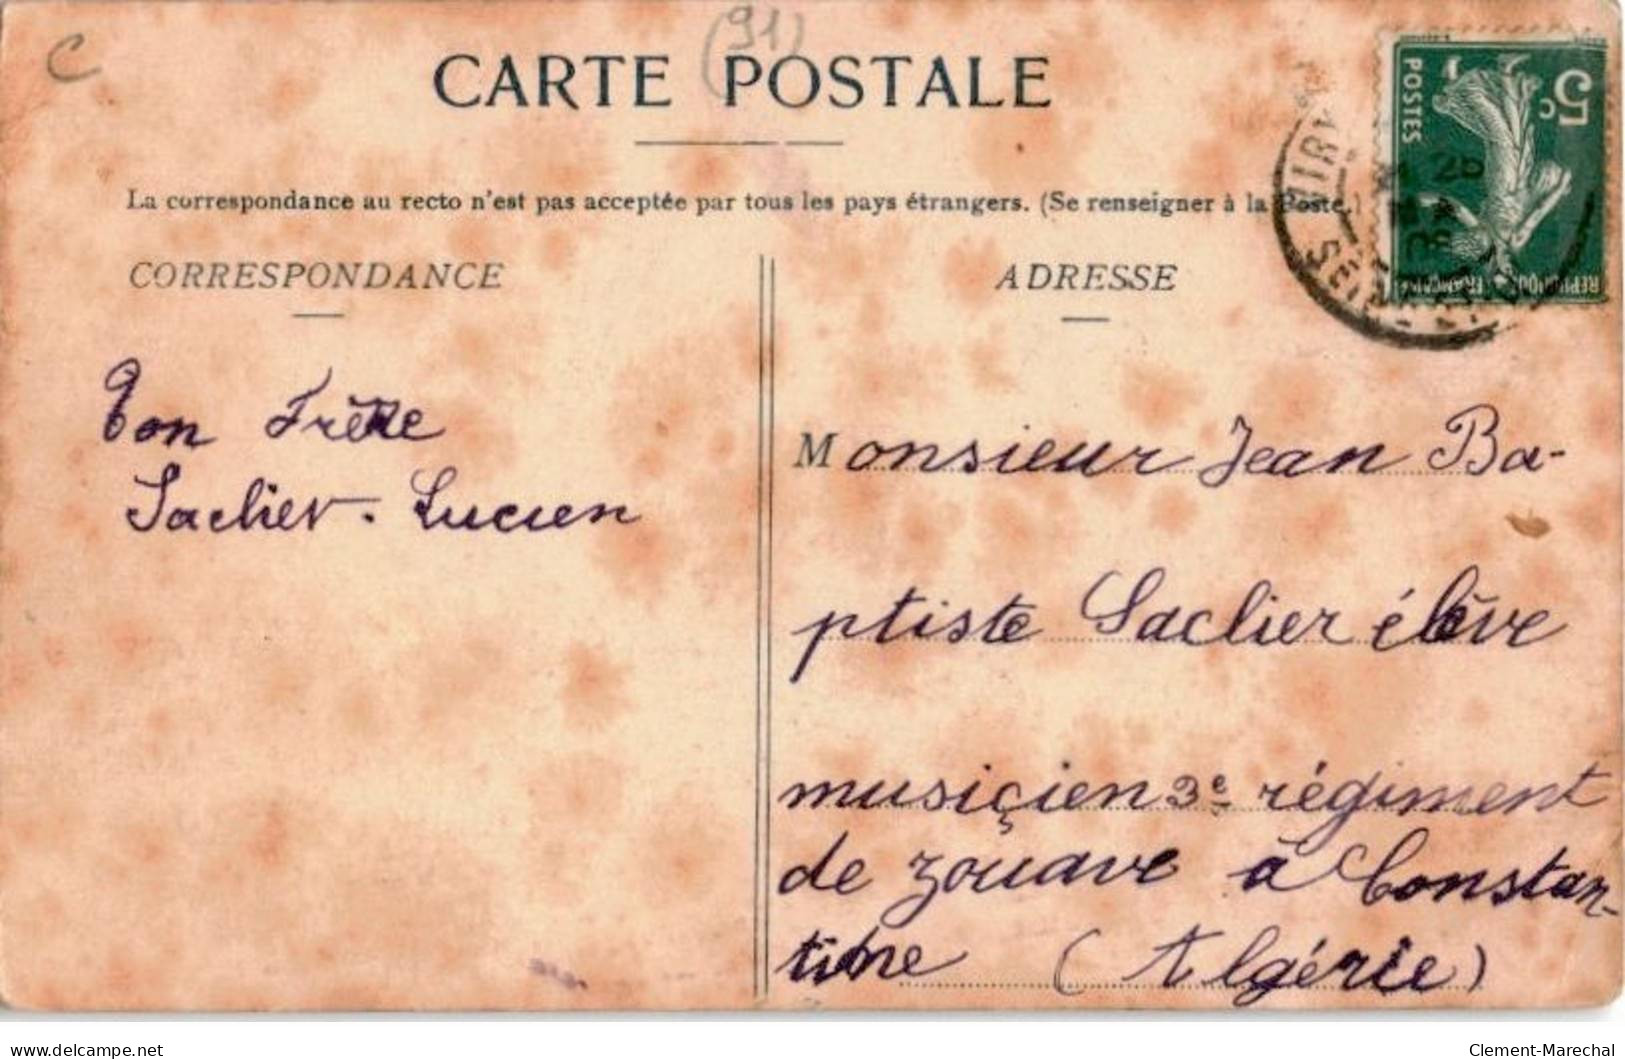 C
(91)
CARTE POSTALE
5c
POSTES
RÉPUBLIQUE FRANÇAISE
La correspondance au recto n'est pas acceptée par tous les pays étrangers. (Se renseigner à la Poste.)
CORRESPONDANCE
ADRESSE
Ton Frère
Saclier. Lucien
Monsieur Jean Ba-
ptiste Saclier élève
musiçien 3e régiment
de zouave à Constan-
tine (Algérie)
delcampe.net
Clement-Marechal